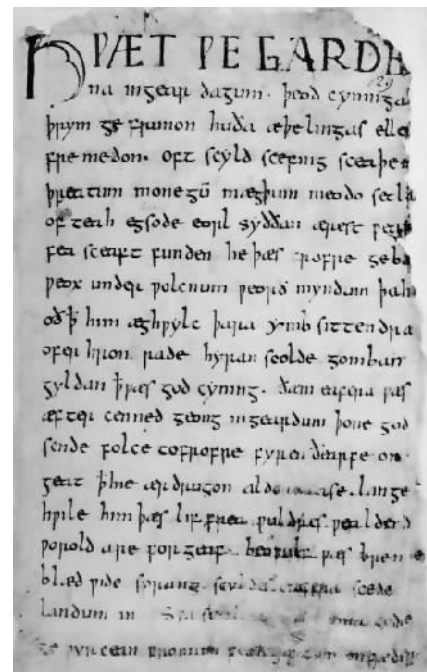 HǷÆT ǷE GARDE
na ingear dagum. þeod cyninga
þrym ge frunon huða æþelingas elle
fre medon. oft scyld scefing sceaþe
þreatum monegū mægþum meodo setla
of teah egsode eorl syððan ærest ƿear
fea sceaft funden he þæs frofre geba
ƿeox under ƿolcnum ƿeorð myndum þah
oð þ him æghƿylc þara ymb sittendra
ofer hron rade hyran scolde gomban
gyldan þ ƿæs god cyning. ðæm eafera ƿæs
æfter cenned geong ingeardum þone god
sende folce tofrofre fyren ðearfe on
geat þ hie ær drugon aldor ase. lange
hƿile him þæs lif frea ƿuldres ƿealdend
ƿorold are for geaf. beoƿulf ƿæs breme
blæd ƿide sprang scyldes eafera scede
landum in